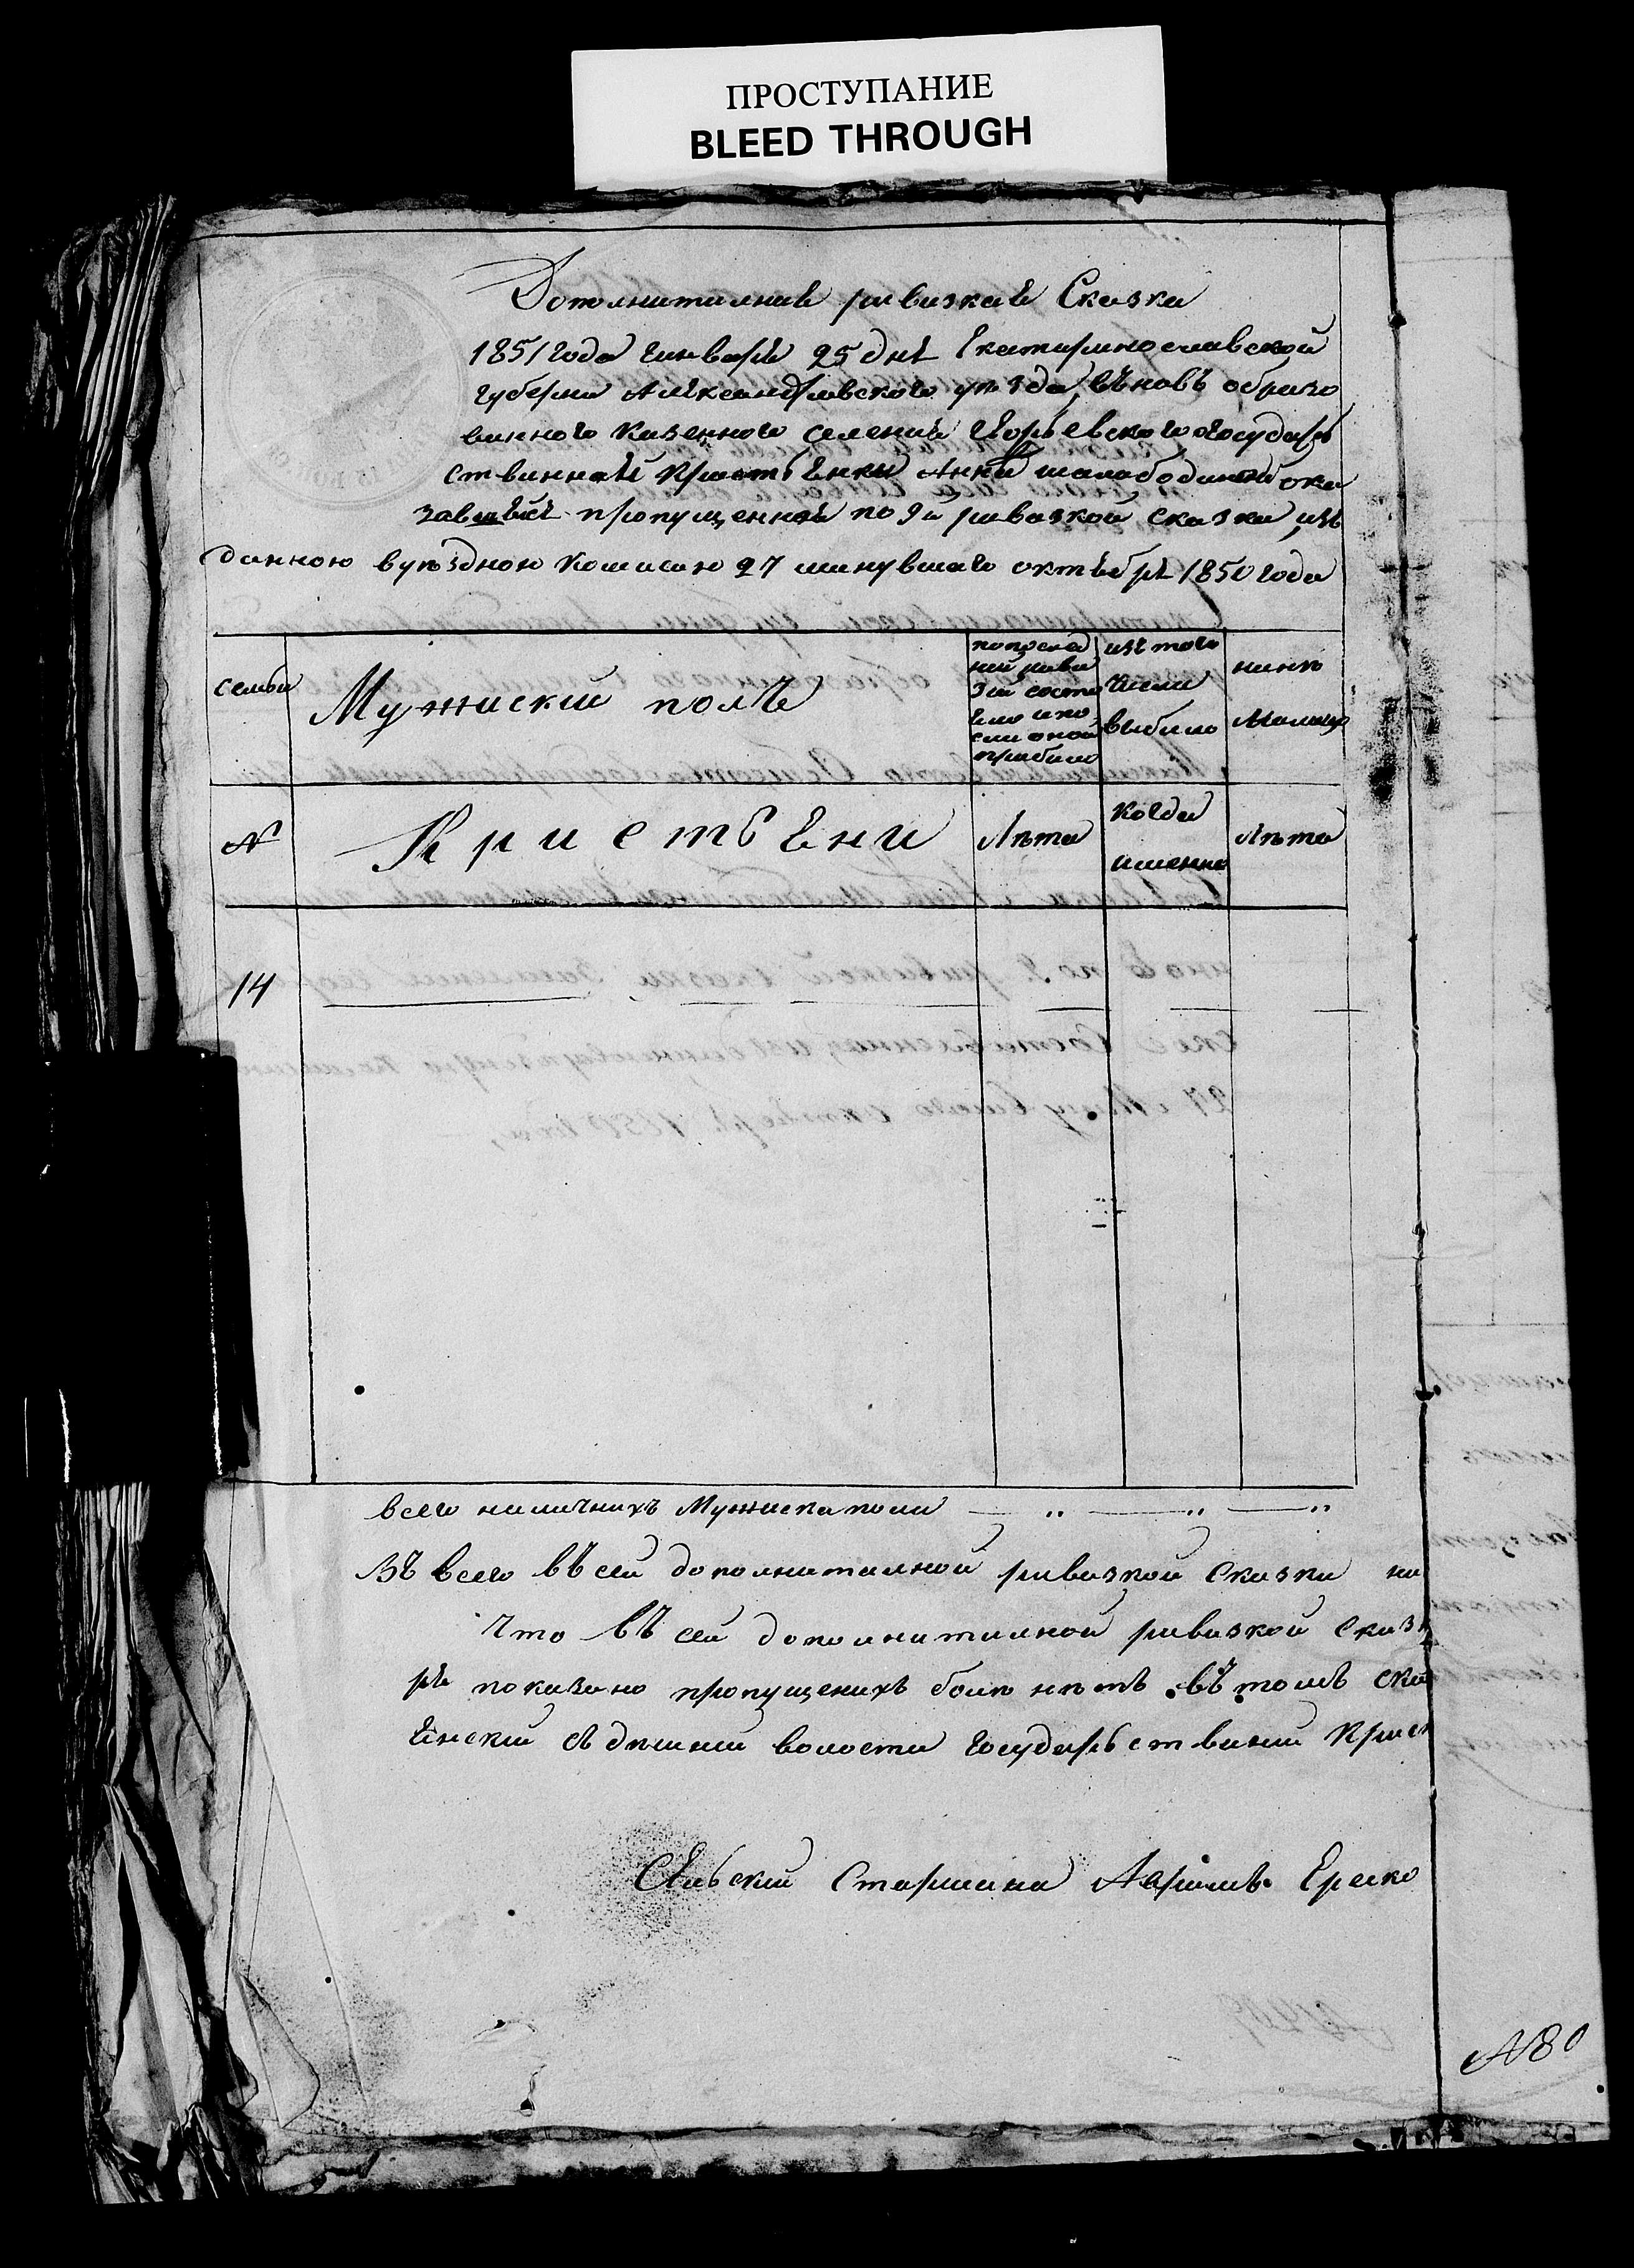 ПРОСТУПАНИЕ
BLEED THROUGH
Дополнителная ривизкая Сказка
1851 года генваря 25 дня Екатеринославской
губерни Александровского уѣзда, въновь образо
ванного казенного селения Егорьевского государ
ствинной крестьянки Анни ока
завшейся пропущенной по 9й ривизкой сказки, изъ
данною вуѣздною комисию 27 минувшаго октября 1850 года
семьи
Мужиский полъ
изъ того
числа
выбило
нинѣ
налицо
№
Кристьяни
Лѣта
когда
именно
Лѣта
14
всего наличнихъ Мужиска пола — " — " — "
въ всего въ сей дополнителной ривизкой Сказки на
что въ сей дополнителной ривизкой Сказ
ря показано пропущенихъ болѣ нѣтъ въ томъ ска
волости государствиний Крис
Сельский Старшина Ереско
№ 80